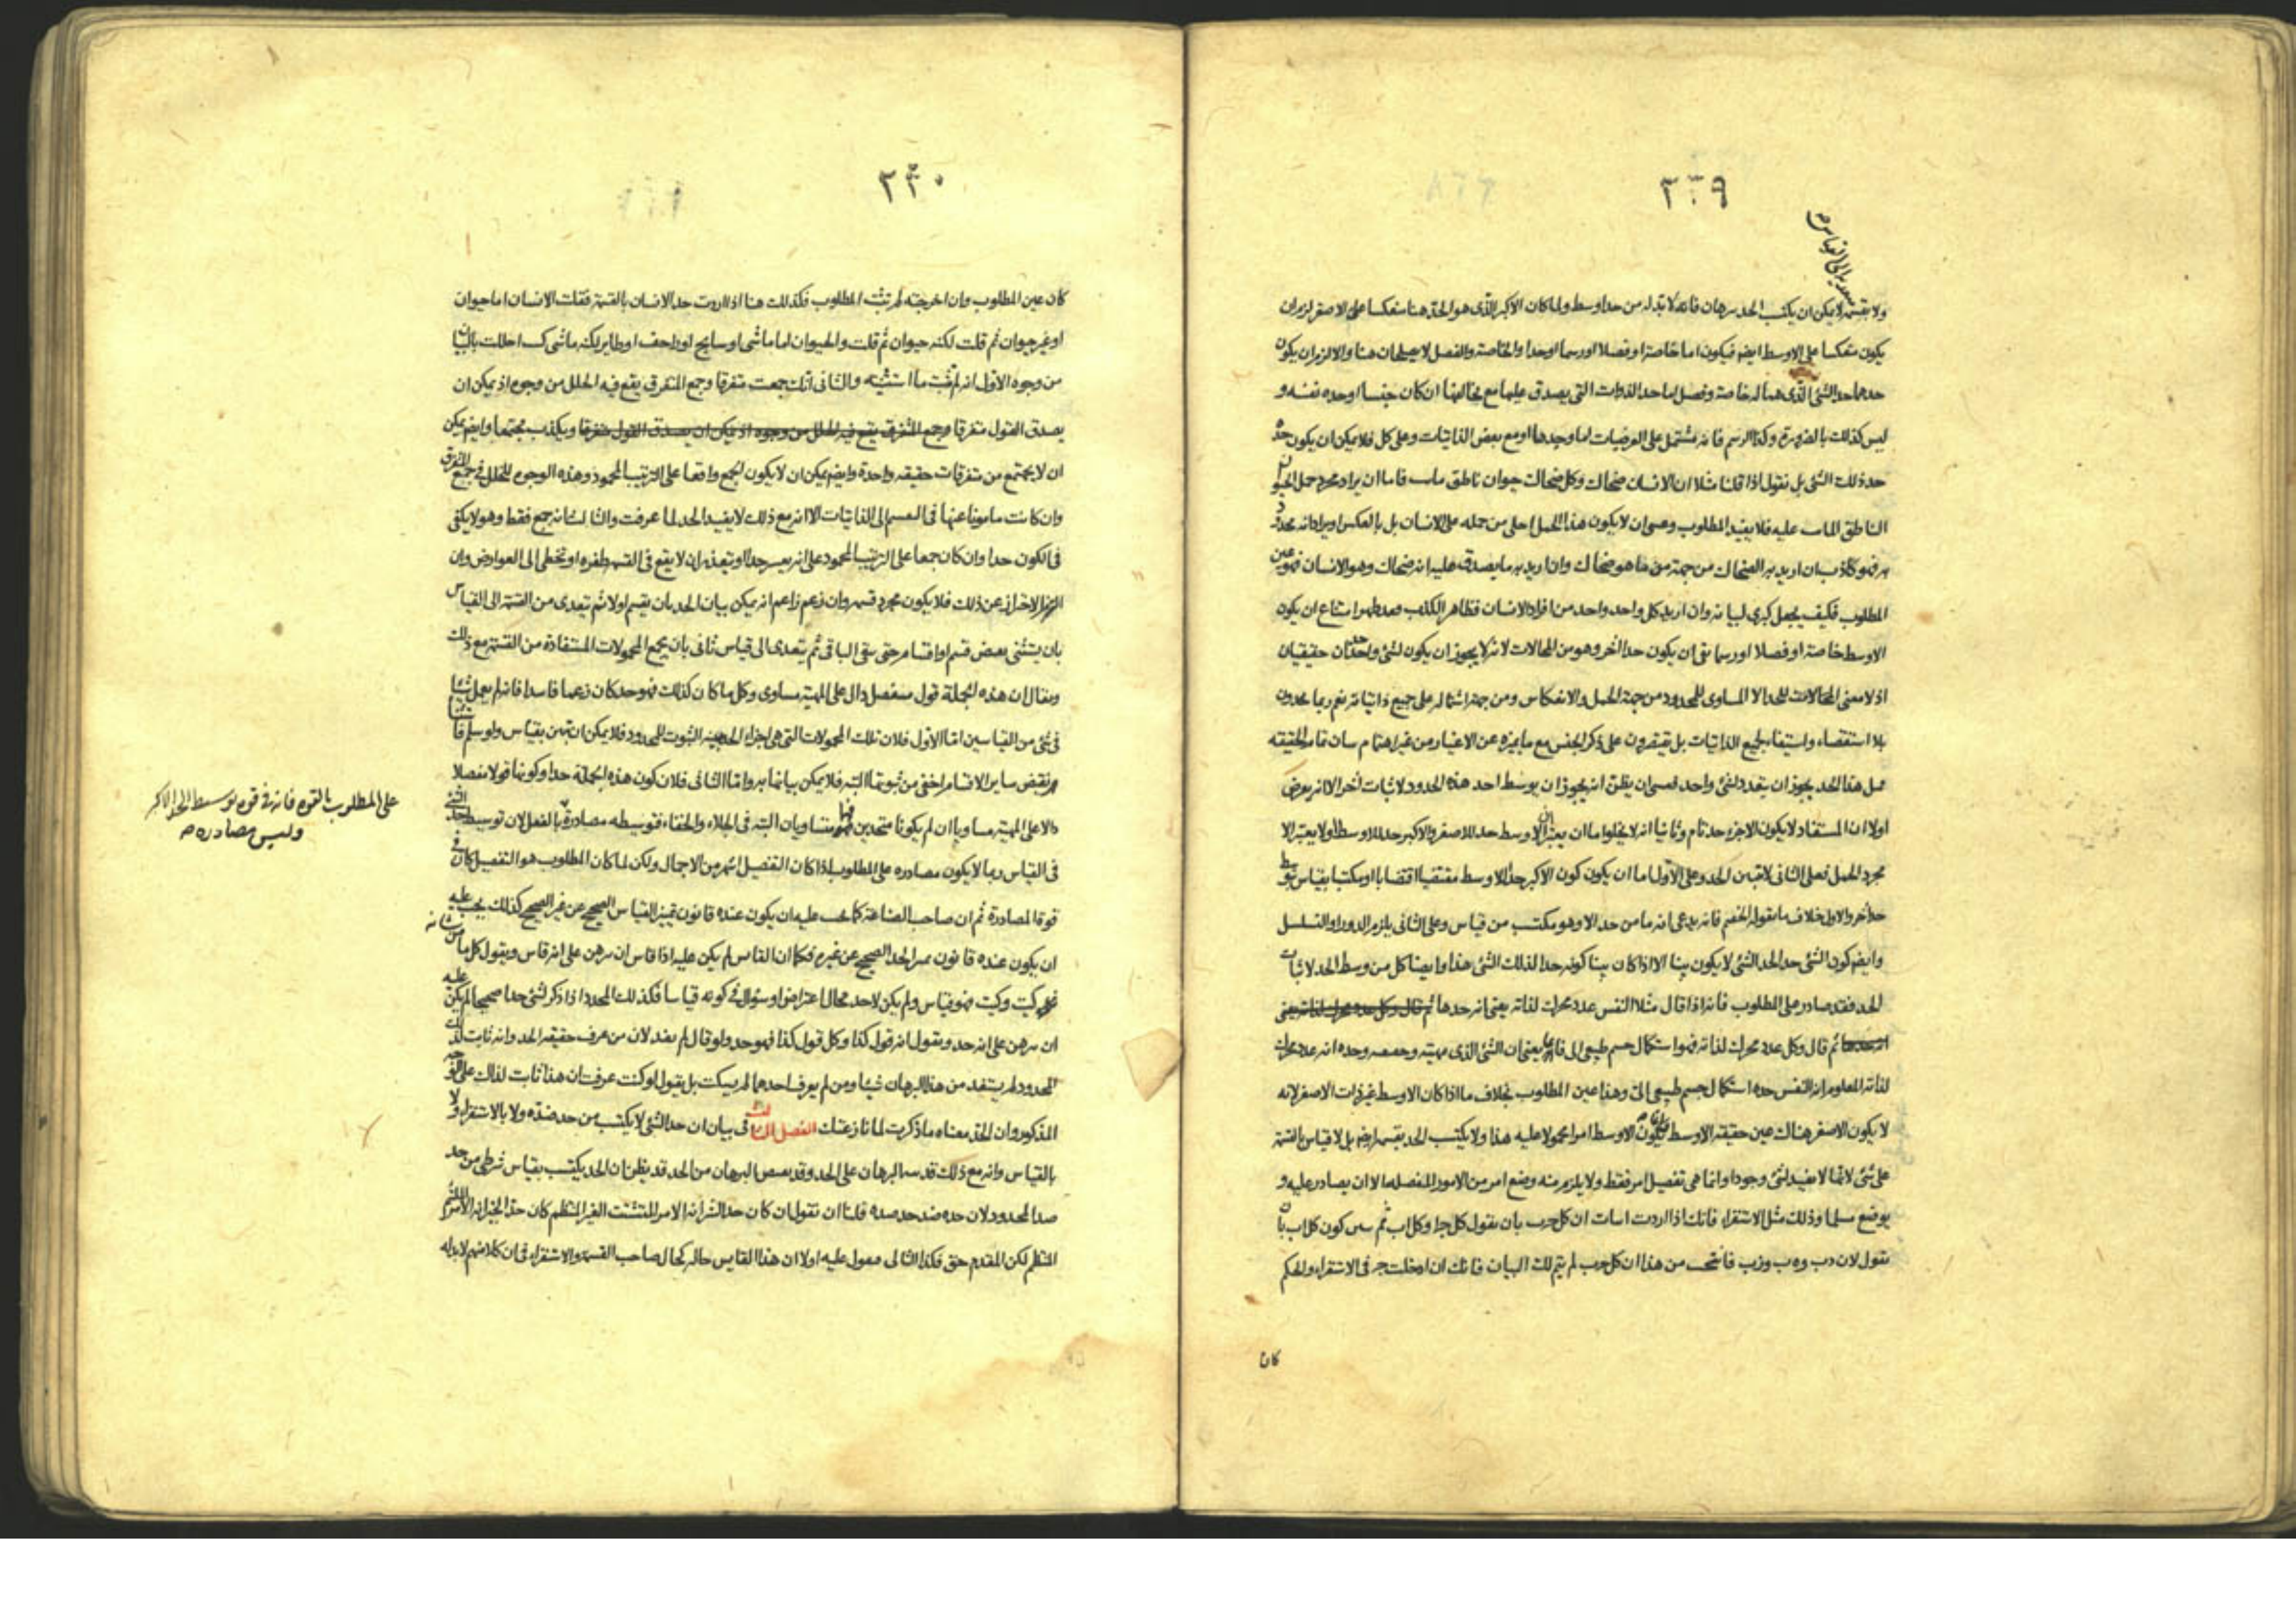 ٢٣٩
ولا بقسمة لا يمكن ان يكتسب الحد ببرهان فانه لا بد له من حد اوسط ولما كان الاكبر الذى هو الحد هنا منعكسا على الاصغر لزم ان
يكون منعكسا على الاوسط ايضا فيكون اما خاصة او فصلا او رسما او حدا والخاصة والفصل لا يصلحان هنا والا لزم ان يكون
حدهما حد الشئ الذى هما له خاصة وفصل اما حد الذوات التى يصدق عليها مع تخالفها ان كان جنسا او حده نفسه و
ليس كذلك بالضرورة وكذا الرسم فانه مشتمل على العرضيات اما وحدها او مع بعض الذاتيات وعلى كل فلا يمكن ان يكون حده
حد ذلك الشئ بل نقول اذا قلنا مثلا ان الانسان ضحاك وكل ضحاك حيوان ناطق مايت فاما ان يراد مجرد حمل الحيوان
الناطق المايت عليه فلا يفيد المطلوب وعسى ان لا يكون هذا الحمل اجلى من حمله على الانسان بل بالعكس او يراد انه محدود
به فهو كاذب ان اريد به الضحاك من جهة من ما هو ضحاك وان اريد به ما يصدق عليه انه ضحاك وهو الانسان فهو عين
المطلوب فكيف يجعل كبرى لبيانه وان اريد كل واحد واحد من افراد الانسان فظاهر الكذب فقد ظهر امتناع ان يكون
الاوسط خاصة او فصلا او رسما بقى ان يكون حدا اخر وهو من المحالات لانه لا يجوز ان يكون لشئ واحد حدان حقيقيان
اذ لا معنى للحد الا المساوى للمحدود من جهة الحمل والانعكاس ومن جهة اشتماله على جميع ذاتياته نعم ربما يحدون
بلا استقصاء واستيفاء لجميع الذاتيات بل يقتصرون على ذكر الجنس مع ما يميزه عن الاغيار من غير اهتمام بيان تمام الحقيقة
فمثل هذا الحد يجوز ان يتعدد لشئ واحد فعسى ان يظن انه يجوز ان يوسط احد هذه الحدود لاثبات اخر الا انه يعرض
اولا ان المستفاد لا يكون الا جزء حد تام وثانيا انه لا يخلو اما ان يعتبر ان الاوسط حد للاصغر والاكبر حد للاوسط او لا يعتبر الا
مجرد الحمل فعلى الثانى لا يتبين الحد وعلى الاول اما ان يكون كون الاكبر حدا للاوسط مقتضيا اقتضابا او مكتسبا بقياس بوسط
حد اخر والاول خلاف ما يقوله الخصم فانه يدعى انه ما من حد الا وهو مكتسب من قياس وعلى الثانى يلزم الدور او التسلسل
وايضا كون الشئ حد الحد الشئ لا يكون بينا الا اذا كان بينا كونه حدا لذلك الشئ هذا وايضا كل من وسط الحد لاثبات
الحد فقد صادر على المطلوب فانه اذا قال مثلا النفس عدد محرك لذاته يعنى انه حدها ثم قال وكل عدد محرك لذاته يعنى
انه حدها ثم قال وكل عدد محرك لذاته فهو استكمال جسم طبيعى الى فاما يعنى ان الشئ الذى مهيته وحده انه عدد محرك
لذاته المعلوم انه النفس حده استكمال جسم طبيعى الى وهذا عين المطلوب بخلاف ما اذا كان الاوسط غير ذات الاصغر لانه
لا يكون الاصغر هناك عين حقيقة الاوسط فيكون الاوسط امرا محمولا عليه هذا ولا يكتسب الحد بقسمة ايضا بل لا قياس بالقسمة
على شئ لانها لا تفيد لشئ وجودا وانما هى تفصيل امر فقط ولا يلزم منه وضع امر من الامور المنفصله الا ان يصادر عليه و
يوضع سلما وذلك مثل الاستقراء فانك اذا اردت اثبات ان كل ج ب بان تقول كل ج ا وكل ا ب ثم تبين كون كل ا ب بان
تقول لان د ب و ه ب و ز ب فانتج من هذا ان كل ج ب لم يتم لك البيان فانك ان ادخلت ج فى الاستقراء والحكم
كان
٢٣٠
كان عين المطلوب وان اخرجته لم تثبت المطلوب فكذلك هنا اذا اردت حد الانسان بالقسمة فقلت الانسان اما حيوان
او غير حيوان ثم قلت لكنه حيوان ثم قلت والحيوان اما ماشى او سابح او زاحف او طاير لكنه ماشى كنت اخللت بالبيان
من وجوه الاول انه لم تثبت ما استثنيته والثانى انك جمعت متفرقا وجمع المتفرق يقع فيه الخلل من وجوه اذ يمكن ان
يصدق القول متفرقا وجمع المتفرق يقع فيه الخلل من وجوه اذ يمكن ان يصدق القول متفرقا ويكذب مجتمعا وايضا يمكن
ان لا يجتمع من متفرقات حقيقه واحدة وايضا يمكن ان لا يكون الجمع واقعا على الترتيب المحمود وهذه الوجوه للخلل فى جمع المتفرق
وان كانت مامونا عنها فى القسم الى الذاتيات الا انه مع ذلك لا يفيد الحد لما عرفت والثالث انه جمع فقط وهو لا يكفى
فى الكون حدا وان كان جمعا على الترتيب المحمود على انه يعسر جدا او يتعذر ان لا يقع فى القسمه طفره او تخطى الى العوارض وان
الاحتراز عن ذلك فلا يكون مجرد قسمه وان زعم زاعم انه يمكن بيان الحد بان تقسم اولا ثم تتعدى من القسمة الى القياس
بان يستثنى بعض قسم او اقسام حتى يبقى الباقى ثم يتعدى الى قياس ثانى بان يجمع المحمولات المستفادة من القسمة مع ذلك
ويقال ان هذه الجملة قول مفصل دال على المهية مساوى وكل ما كان كذلك فهو حد كان زعما فاسدا فانه لم يعمل شيئا
فى شئ من القياسين اما الاول فلان تلك المحمولات التى هى اجزاء الحد بينه الثبوت للمحدود فلا يمكن ان تبين بقياس ولو سلم فانما
نقض ساير الاقسام اخفى من ثبوتها البته فلا يمكن بيانها به واما الثانى فلان كون هذه الجملة حدا وكونها قولا مفصلا
دالا على المهية مساويا ان لم يكونا متحدين فهما متساويان البته فى الجلاء والخفاء فتوسيطه مصادرة بالفعل لان توسيط حد الشئ
على المطلوب بالقوه فانه فى قوه توسيط الحد الاكبر
وليس مصادره م
فى القياس ربما لا يكون مصادره على المطلوب اذا كان التفصيل اشهر من الاجمال ولكن لما كان المطلوب هو التفصيل كان فى
قوة المصادرة ثم ان صاحب الصناعة كما يجب عليه ان يكون عنده قانون تمييز القياس الصحيح عن غير الصحيح كذلك يجب عليه
ان يكون عنده قانون يميز الحد الصحيح عن غيره فكما ان القايس لم يكن عليه اذا قاس ان يبرهن على انه قاس ويقول كل ما من شانه
كيت وكيت فهو قياس ولم يكن لاحد مجال اعتراض او سؤال فى كونه قياسا فكذلك المحدد اذا ذكر لشئ حدا صحيحا لم يكن عليه
ان يبرهن على انه حد ويقول انه قول كذا وكل قول كذا فهو حد ولو قال لم يفد لان من عرف حقيقة الحد وانه ثابت لذلك
المحدود لم يستفد من هذا البرهان شيئا ومن لم يعرف احدهما لم يسكت بل يقول لو كنت عرفت ان هذا ثابت لذاك على الوجه
المذكور وان الحد معناه ما ذكرت لما نازعتك الفصل الثالث فى بيان ان حد الشئ لا يكتسب من حد ضده ولا بالاستقراء ولا
بالقياس وانه مع ذلك قد البرهان على الحد وقد البرهان من الحد قد يظن ان الحد يكتسب بقياس شرطى من حد
ضد المحدود لان حده ضد حد ضده قلنا ان نقول ان كان حد الشر انه الامر المتشتت الغير المنتظم كان حد الخير انه الامر
المنتظم لكن المقدم حق فكذا التالى معول عليه اولا ان هذا القايس حاله كحال صاحب القسمة والاستقراء فى ان كلا منهم لا بد له